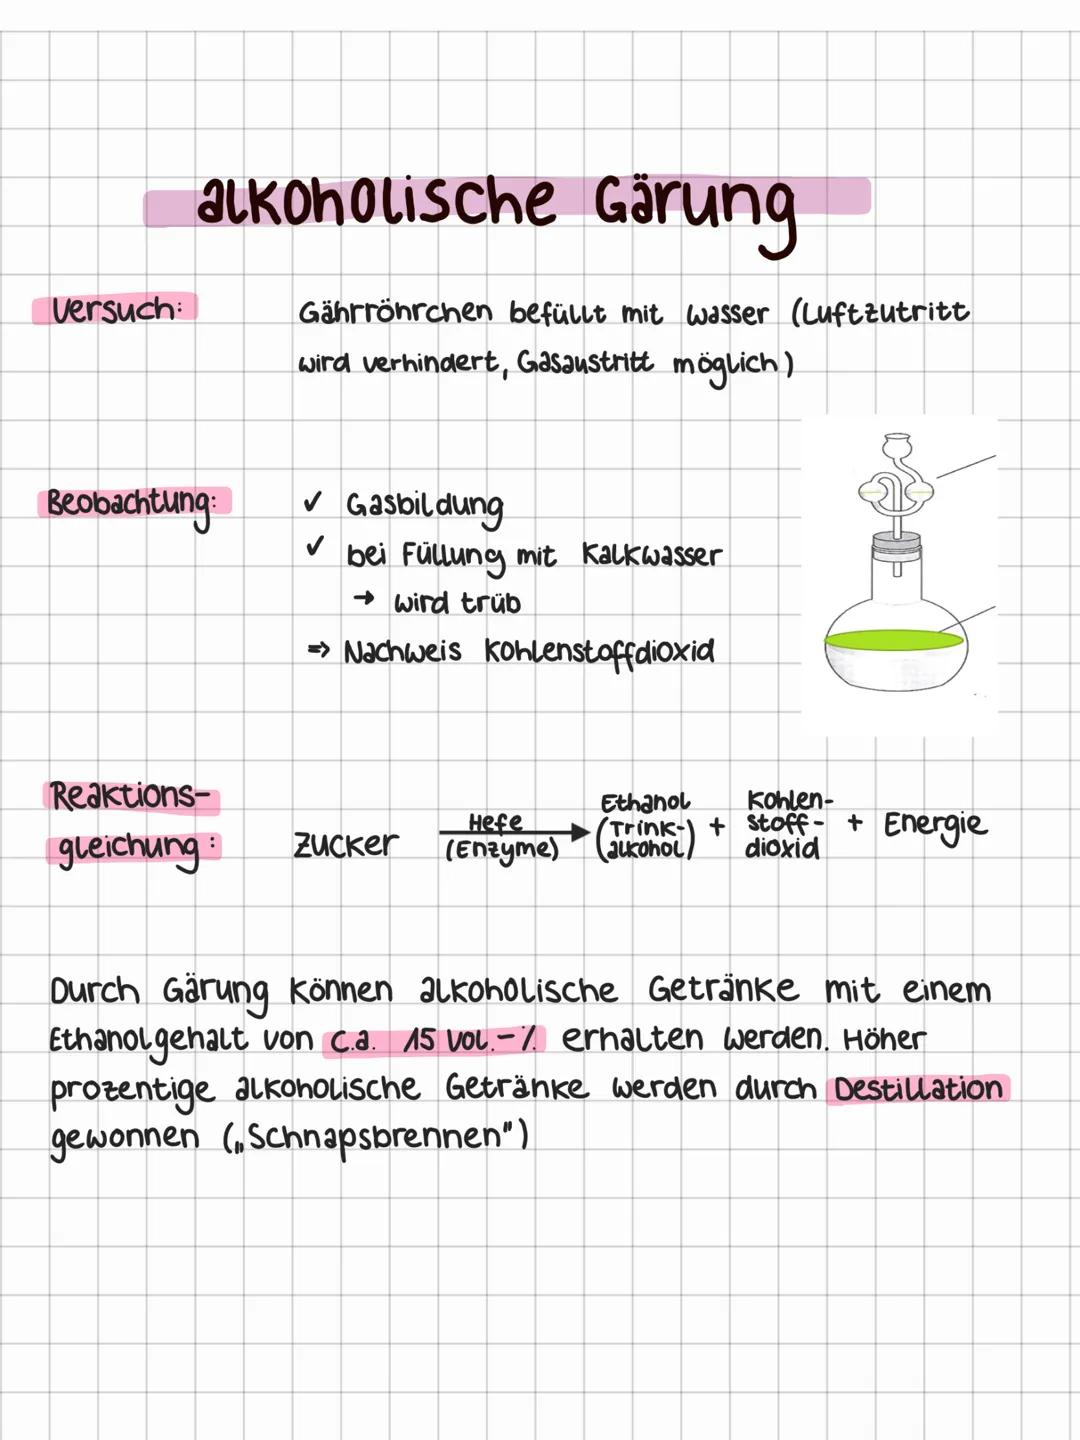 alkoholische Gärung
Versuch:
Gährröhrchen befüllt mit wasser (Luftzutritt
wird verhindert, Gasaustritt möglich)
Beobachtung:
✓ Gasbildung
✓ bei Füllung mit Kalkwasser
→ wird trüb
⇒ Nachweis Kohlenstoffdioxid
Reaktions-
gleichung:
Zucker
Hefe
(Enzyme)
Ethanol
(Trink-
alkohol)
+
Kohlen-
stoff-
dioxid
+ Energie
Durch Gärung können alkoholische Getränke mit einem
Ethanolgehalt von c.a. 15 Vol.-% erhalten werden. Höher
prozentige alkoholische Getränke werden durch Destillation
gewonnen („Schnapsbrennen")